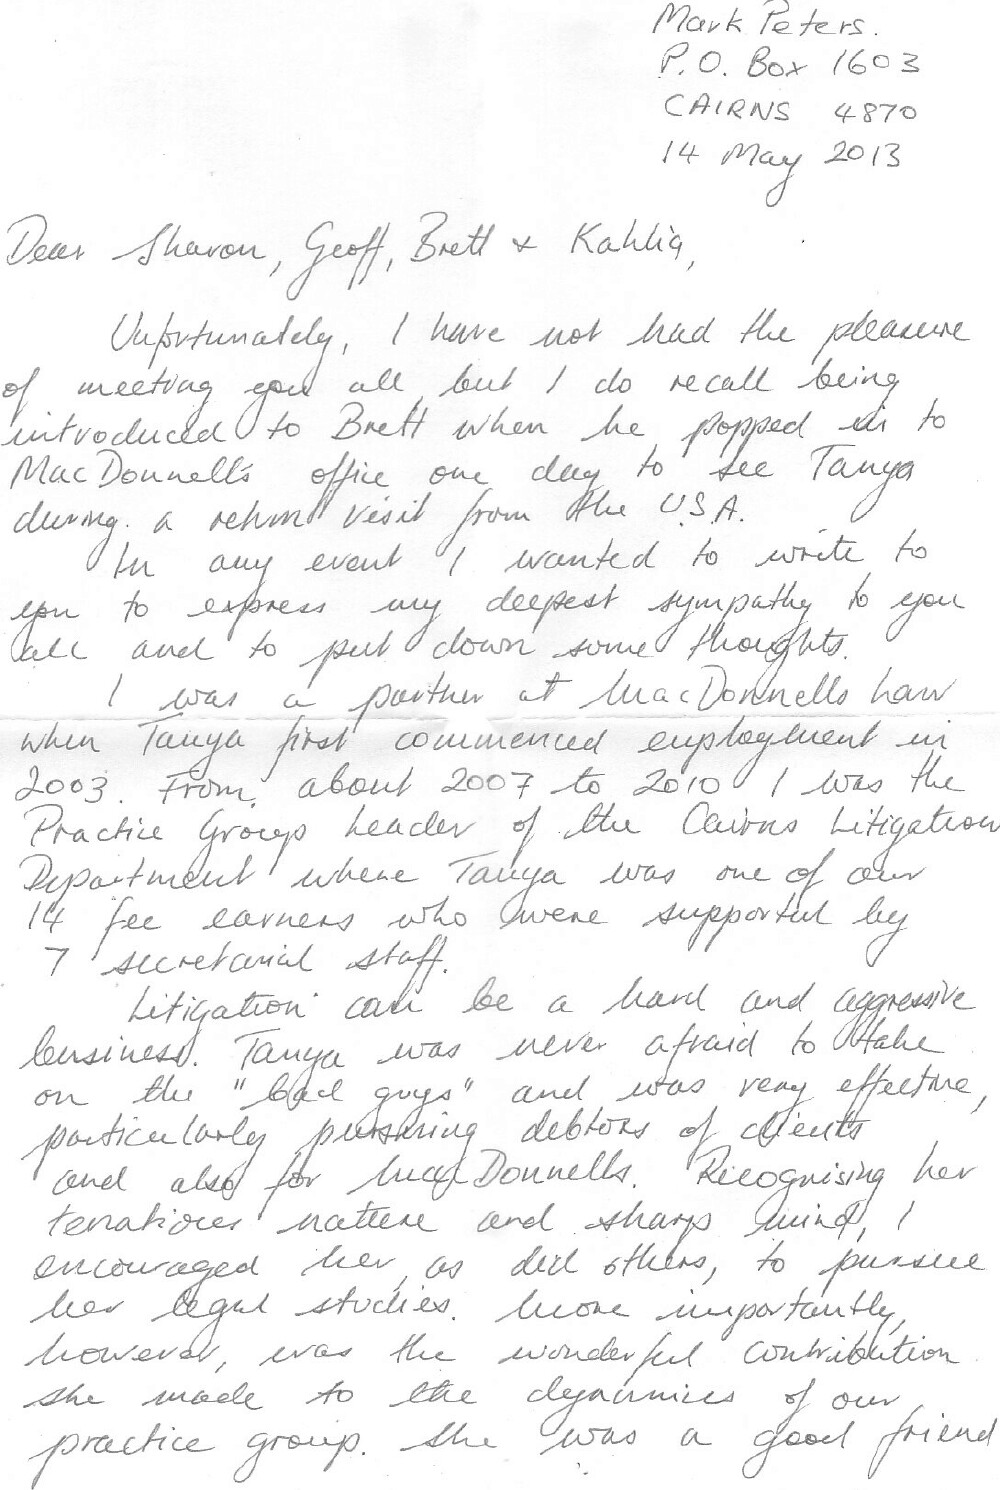 Mark Peters.
P.O. Box 1603
CAIRNS 4870
14 May 2013
Dear Sharon, Geoff, Brett & Kahlia,
Unfortunately, I have not had the pleasure
of meeting you all but I do recall being
introduced to Brett when he popped in to
MacDonnells office one day to see Tanya
during a return visit from the U.S.A.
In any event I wanted to write to
you to express my deepest sympathy to you
all and to put down some thoughts.
I was a partner at MacDonnells Law
when Tanya first commenced employment in
2003. From about 2007 to 2010 I was the
Practice Group Leader of the Cairns Litigation
Department where Tanya was one of our
14 fee earners who were supported by
7 secretarial staff.
Litigation can be a hard and aggressive
business. Tanya was never afraid to take
on the "bad guys" and was very effective,
particularly pursuing debtors of clients
and also for MacDonnells. Recognising her
tenacious nature and sharp mind, I
encouraged her, as did others, to pursue
her legal studies. More importantly,
however, was the wonderful contribution
she made to the dynamics of our
practice group. She was a good friend